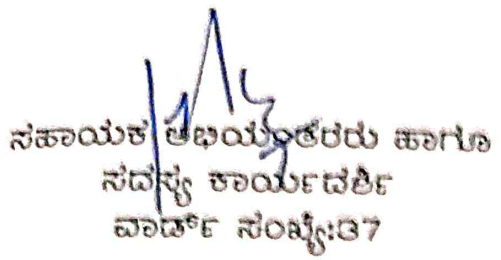 ಸಹಾಯಕ ಅಭಿಯಂತರರು ಹಾಗೂ
ಸದಸ್ಯ ಕಾರ್ಯದರ್ಶಿ
ವಾರ್ಡ್ ಸಂಖ್ಯೆ:37